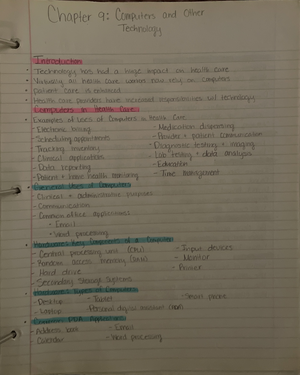 Chapter 9: Computers and Other
Technology
Introduction
Technology has had a huge impact on health care
Virtually all health care workers rely on computers
patient care is enhanced
Health care providers have increased responsibilities w/ technology
Computers in Health Care
Examples of Uses of Computers in Health Care
- Electronic billing
- Medication dispensing
- Scheduling appointments
- Provider + patient communication
- Tracking inventory
- Diagnostic testing + imaging
- Clinical applications
- Lab testing + data analysis
- Data reporting
- Education
- Patient + home health monitoring
- Time management
General Uses of Computers
- Clinical + administrative purposes
- Communication
- Common office applications
Email
Word processing
Hardware: Key Components of a Computer
- Central processing unit (CPU)
- Input devices
- Random access memory (RAM)
- Monitor
- Hard drive
- Printer
- Secondary Storage Systems
Hardware: Types of Computers
- Desktop
- Tablet
- Smart phone
- Laptop
- Personal digital assistant (PDA)
Common PDA Applications
- Address book
- Email
- Calendar
- Word processing